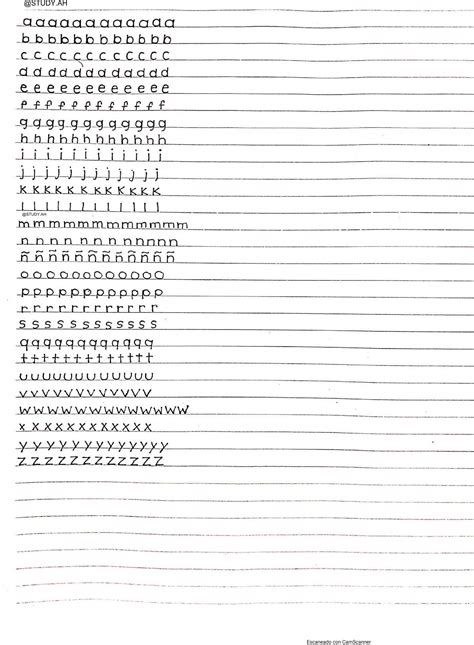 @STUDY.AH
a a a a a a a a a a a a
b b b b b b b b b b b b
c c c c c c c c c c c c
d d d d d d d d d d d d
e e e e e e e e e e e e
f f f f f f f f f f f f
g g g g g g g g g g g g
h h h h h h h h h h h h
i i i i i i i i i i i
j j j j j j j j j j j
k k k k k k k k k k k k
l l l l l l l l l l l
@STUDY.AH
m m m m m m m m m m m m
n n n n n n n n n n n
ñ ñ ñ ñ ñ ñ ñ ñ ñ ñ ñ ñ
o o o o o o o o o o o o
p p p p p p p p p p p p
r r r r r r r r r r r r
s s s s s s s s s s s s
q q q q q q q q q q q
t t t t t t t t t t t t
u u u u u u u u u u u
v v v v v v v v v v v
w w w w w w w w w w w w
x x x x x x x x x x x x
y y y y y y y y y y y y
z z z z z z z z z z z z
Escaneado con CamScanner